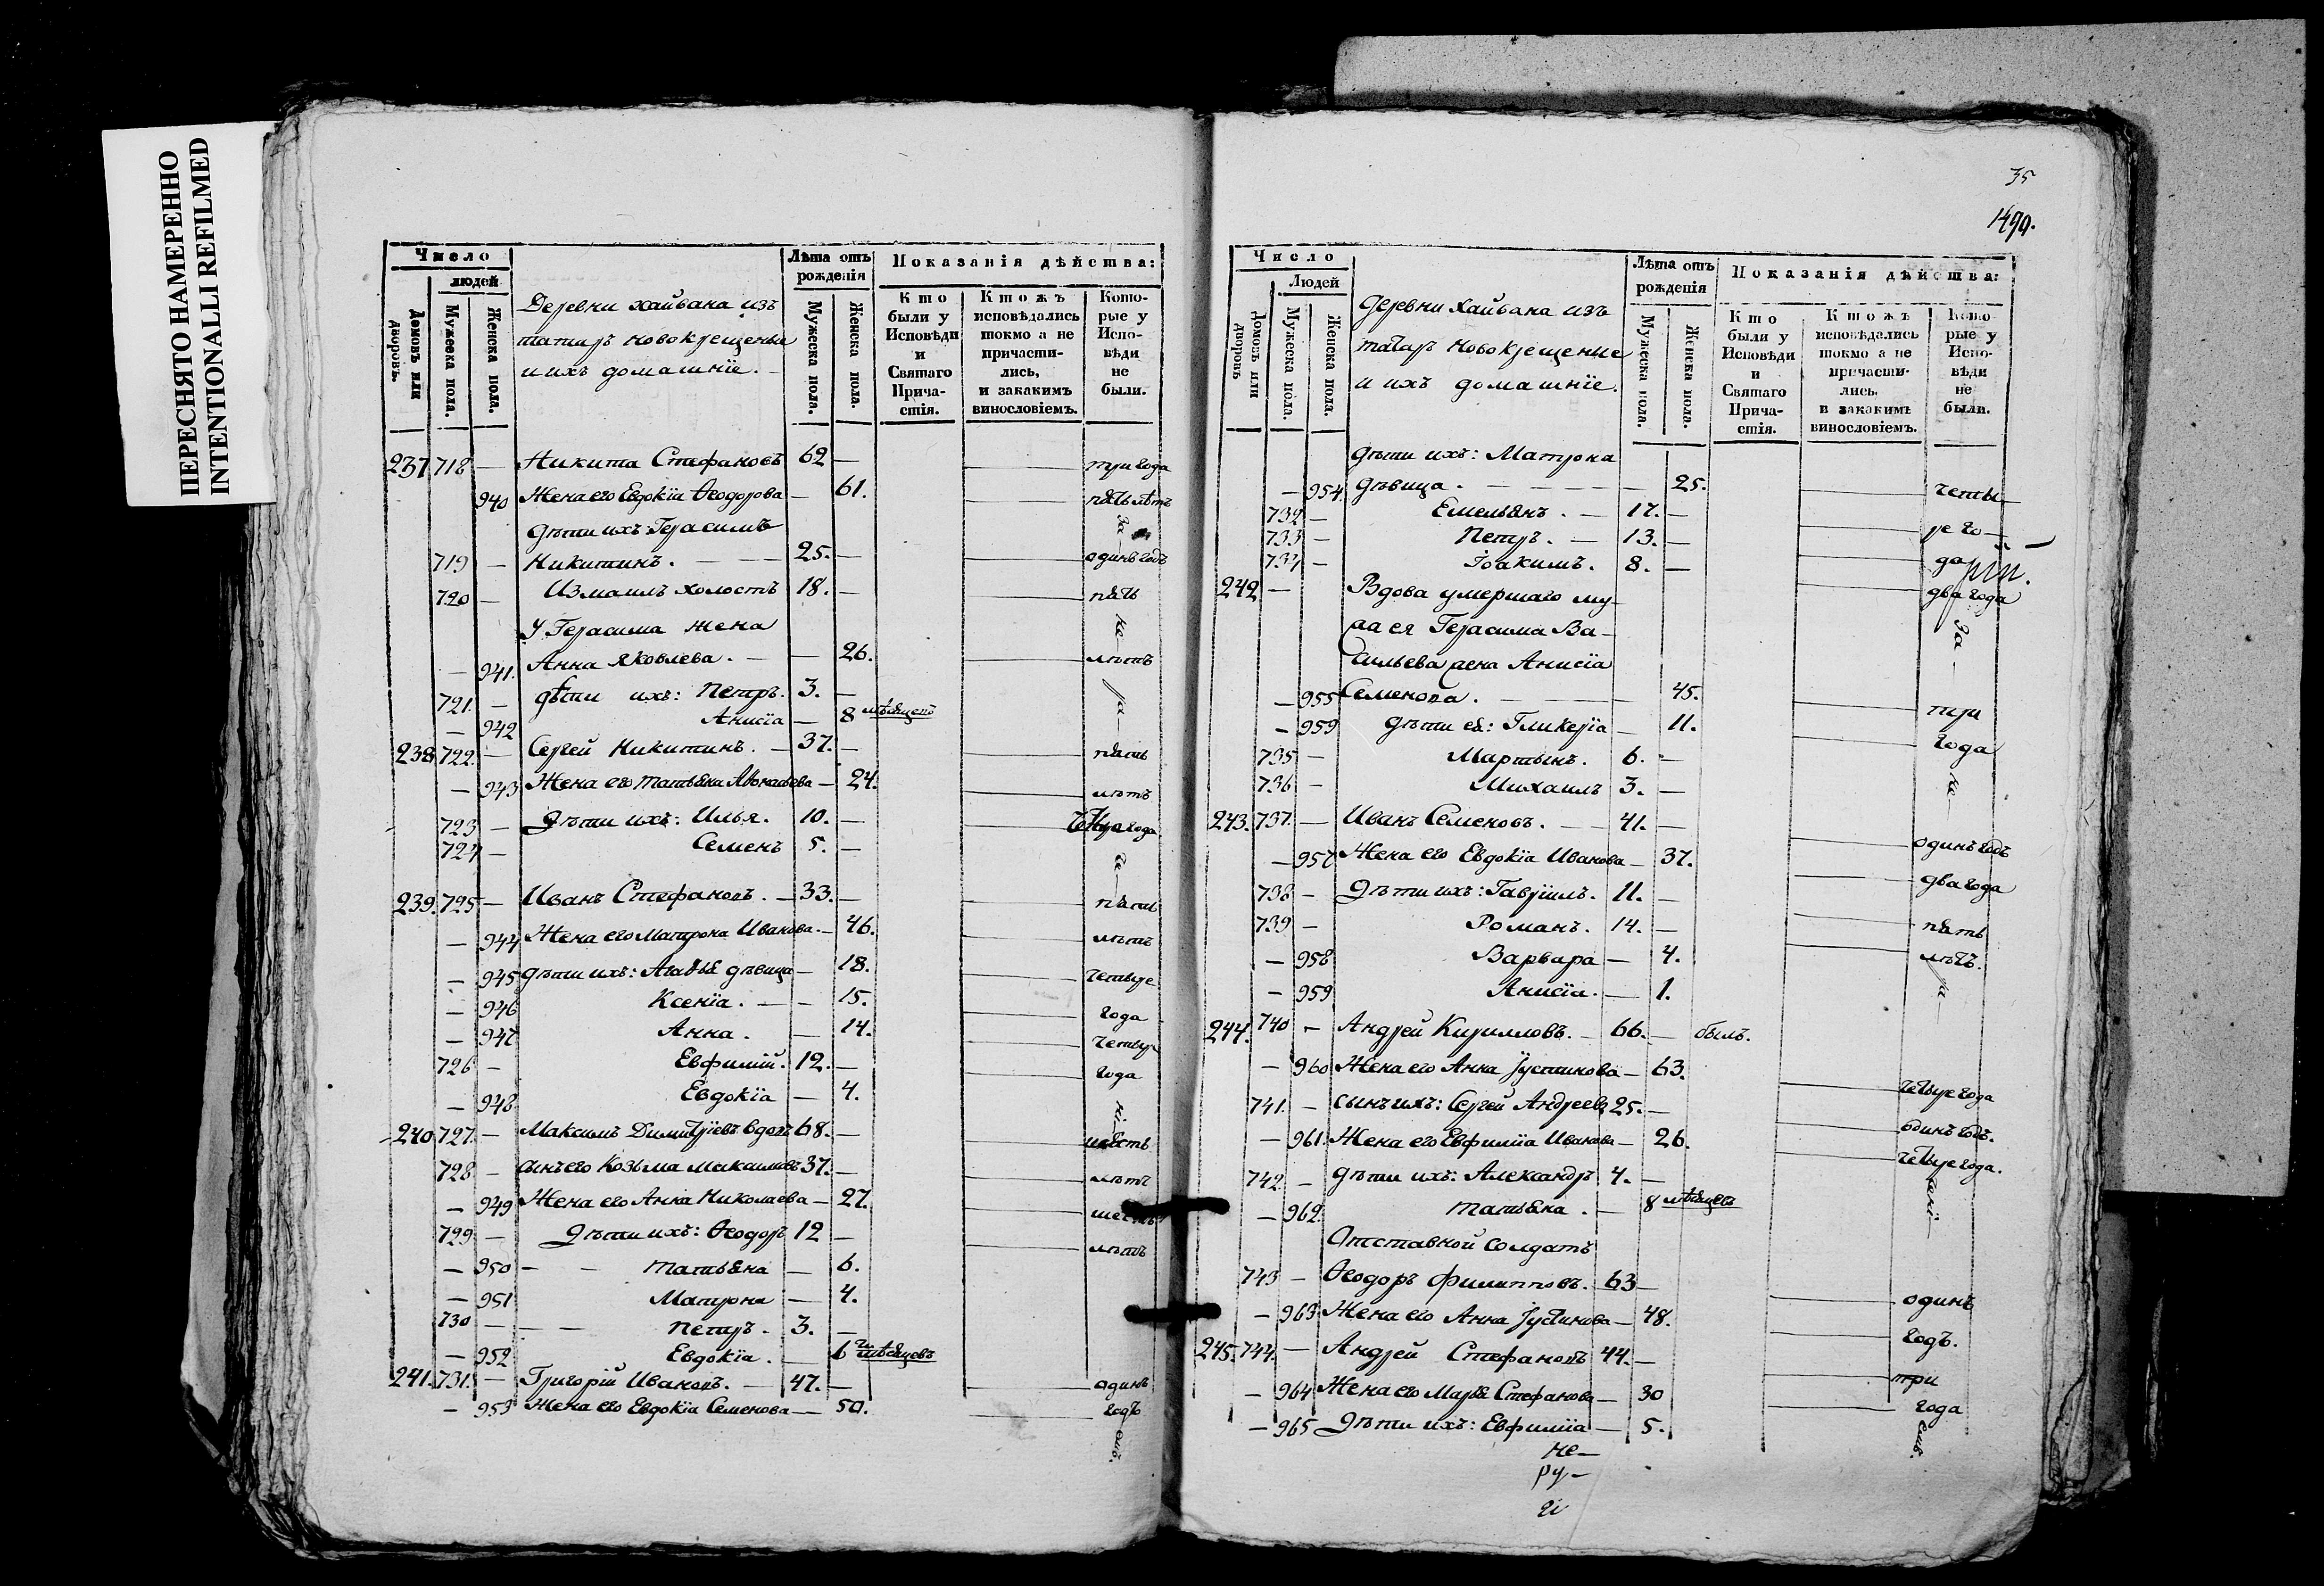 ПЕРЕСНЯТО НАМЕРЕННО
INTENTIONALLI REFILMED
Число
людей
Домовъ или дворовъ.
Мужеска пола.
Женска пола.
Деревни Хайвана изъ
татаръ новокрещеные
и ихъ домашніе.
Лѣта отъ рожденія
Мужеска пола.
Женска пола.
Показанія дѣйства:
Кто были у Исповѣди и Святаго Прича-стія.
Ктожъ исповѣдались токмо а не причасти-лись, и закакимъ винословіемъ.
Кото-рые у Испо-вѣди не были.
237. 718 — Никита Стефановъ 62 — три года
940 Жена его Евдокіа Ѳеодорова — 61. пять лѣтъ
дѣти ихъ: Герасимъ
719 — Никитинъ. — 25. — одинъ годъ
720 — Измаилъ холостъ 18. — пять
У Герасима жена
— 941. Анна Яковлева. — — 26. лѣтъ
721. — дѣти ихъ: Петръ. 3. —
— 942 Анисіа — 8 мѣсяцевъ
238. 722. — Сергей Никитинъ. — 37. — пять
— 943 Жена его Татьяна — 24. лѣтъ
723 — Дѣти ихъ: Илья. 10. — года
724 — Семенъ 5. —
239. 725 — Иванъ Стефановъ. — 33. — пять
— 944 Жена его Матрона Иванова. — 46. лѣтъ
— 945 дѣти ихъ: Агаѳья дѣвица — 18. четыре
— 946 Ксеніа. — — 15. года
— 947 Анна. — 14. четыре
726 — Евфимій. 12. — года
— 948 Евдокіа — 4.
240. 727. — Максимъ Димитріевъ вдовъ 68. — шесть
728 — сынъ его Козьма Максимовъ 37. — лѣтъ
— 949 Жена его Анна Николаева — 27. шесть
729 — Дѣти ихъ: Ѳеодоръ 12 — лѣтъ
— 950 — — Татьяна — 6.
— 951 Матрона — 4.
730 — — — Петръ. 3. —
— 952 Евдокіа. — 6 мѣсяцевъ
241. 731. — Григорій Ивановъ. — 47. — одинъ
— 953 Жена его Евдокіа Семенова — 50. годъ
35
1499.
Число
Людей
Домовъ или дворовъ
Мужеска пола.
Женска пола.
Деревни Хайвана изъ
татаръ новокрещеные
и ихъ домашніе.
Лѣта отъ рожденія
Мужеска пола.
Женска пола.
Показанія дѣйства:
Кто были у Исповѣди и Святаго Прича-стія.
Ктожъ исповѣдались токмо а не причасти-лись, и закакимъ винословіемъ.
Кото-рые у Испо-вѣди не были.
дѣти ихъ: Матрона
— 954. дѣвица. — — — — 25. четы—
732 — Емельянъ. — 17. — ре го—
733 — Петръ. — 13. — да
734 — Іоакимъ. 8. — два года
242 — Вдова умершаго му-
Герасима Ва-
сильева жена Анисіа
— 955 Семенова. — — 45. три
— 959 дѣти ея: Гликеріа — 11. года
735 — Мартынъ. 6. —
736 — Михаилъ 3. —
243. 737. — Иванъ Семеновъ. — 41. — одинъ годъ
— 957 Жена его Евдокіа Иванова — 37. два года
738 — Дѣти ихъ: Гавріилъ. 11. — пять
739 — Романъ. 14. — лѣтъ.
— 958 Варвара — 4.
— 959 Анисіа. — 1.
244. 740 — Андрей Кирилловъ. — 66. — былъ.
— 960 Жена его Анна Іустинова — 63. четыре года
741. — сынъ ихъ: Сергей Андреевъ 25. — одинъ годъ.
— 961. Жена его Евфиміа Иванова — 26. четыре года.
742 — дѣти ихъ: Александръ 4. —
— 962. Татьяна. — 8 мѣсяцевъ
Отставной солдатъ
743 — Ѳеодоръ Филипповъ. 63 — одинъ
— 963 Жена его Анна Іустинова — 48. годъ.
245. 744. — Андрей Стефановъ 44. — три
— 964 Жена его Марья Стефанова — 30 года
— 965 Дѣти ихъ: Евфиміа — 5.